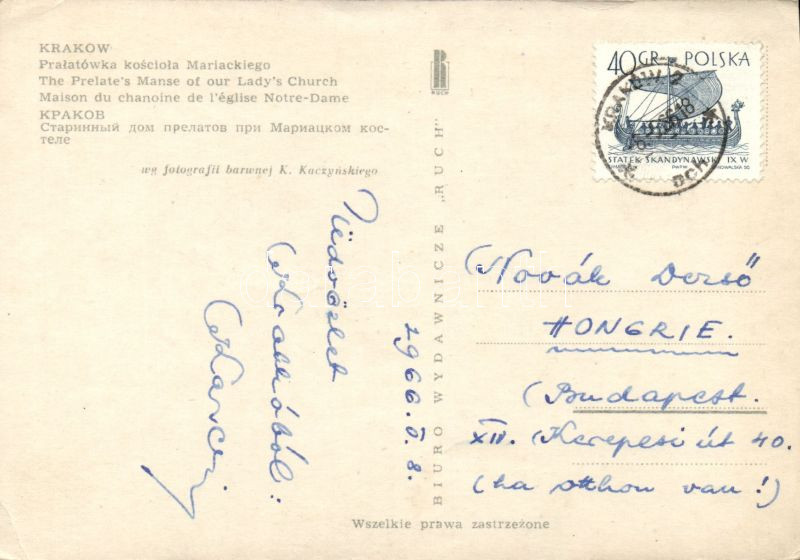 KRAKÓW
Prałatówka kościoła Mariackiego
The Prelate's Manse of our Lady's Church
Maison du chanoine de l'église Notre-Dame
КРАКОВ
Старинный дом прелатов при Мариацком кос-
теле
wg fotografii barwnej K. Kaczyńskiego
RUCH
BIURO WYDAWNICZE „RUCH"
Wszelkie prawa zastrzeżone
40GR POLSKA
STATEK SKANDYNAWSKI IX W
KRAKÓW 2
Üdvözlet
Krakkóból:
1966. 5. 8.
Novák Dezső
HONGRIE.
Budapest.
XIV. Kerepesi út 40.
(ha otthon van!)